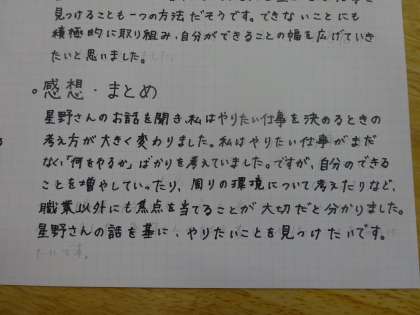 見つけることも一つの方法だそうです。できないことにも
積極的に取り組み、自分ができることの幅を広げていき
たいと思いました。
。感想・まとめ
星野さんのお話を聞き、私はやりたい仕事を決めるときの
考え方が大きく変わりました。私はやりたい仕事がまだ
なく「何をやるか」ばかりを考えていました。ですが、自分のできる
ことを増やしていったり、周りの環境について考えたりなど、
職業以外にも焦点を当てることが大切だと分かりました。
星野さんの話を基に、やりたいことを見つけたいです。
たいです。